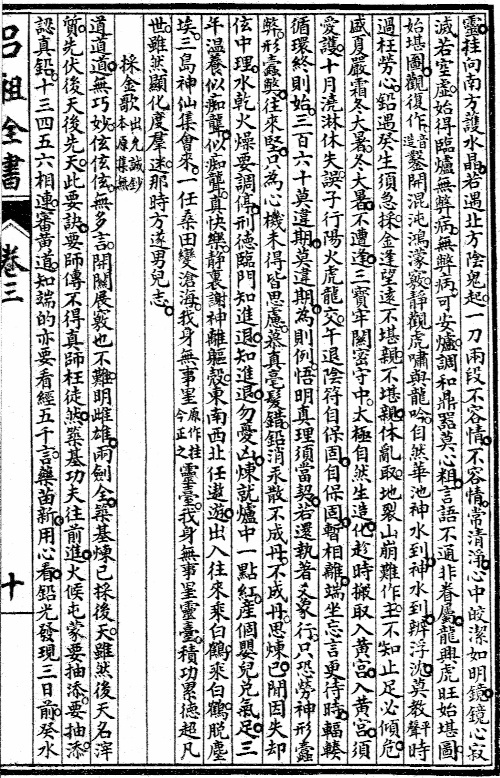 靈柱向南方護水晶若遇北方陰鬼起一刀兩段不容情不容情常清淨心中皎潔如明鏡鏡心寂
滅若室虛始得臨爐無弊病無弊病可安爐調和鼎器莫心粗言語不通非眷屬龍興虎旺始堪圖
始堪圖觀復作音造鑿開混沌鴻濛竅靜觀虎嘯與龍吟自然華池神水到神水到辨浮沈莫教聲時
過枉勞心鉛遇癸生須急採金逢望遠不堪親不堪親休亂取地裂山崩難作主不知止足必傾危
盛夏嚴霜冬大暑冬大暑不遭逢三寶牢關密守中太極自然生造化趁時搬取入黃宮入黃宮須
愛護十月澆淋休失誤子行陽火虎龍交午退陰符自保固自保固暫相離端坐忘言更待時輻輳
循環終則始三百六十莫違期莫違期為則例悟明真理須當契若還執著爻象行只恐勞神形蠹
弊形蠹弊往來堅只為心機未得皆思慮慕真毫髮錯鉛消汞散不成丹不成丹思煉已閉因失却
㑀中理水乾火燥要調停刑德臨門知進退知進退勿憂凶煉就爐中一點紅產個嬰兒兌氣足三
年溫養似痴聾似痴聾真快樂靜裏謝神離軀殼東南西北任遨遊出入往來乘白鶴乘白鶴脫塵
埃三島神仙集會來一任桑田變滄海我身無事星原作挂今正之靈臺我身無事星靈臺積功累德超凡
世雖然顯化度羣迷那時方遂男兒志
採金歌出允誠鈔本原集無
道道道無巧妙㑀㑀㑀無多言開關展竅也不難明雌雄兩劍全築基煉已採後天雖然後天名滓
質先伏後天後先天此要訣要師傳不得真師枉徒然築基功夫往前進火候屯蒙要抽添要抽添
認真鉛十三四五六相連審黃道知端的亦要看經五千言藥苗新用心看鉛光發現三日前癸水
呂祖全書
卷三
十